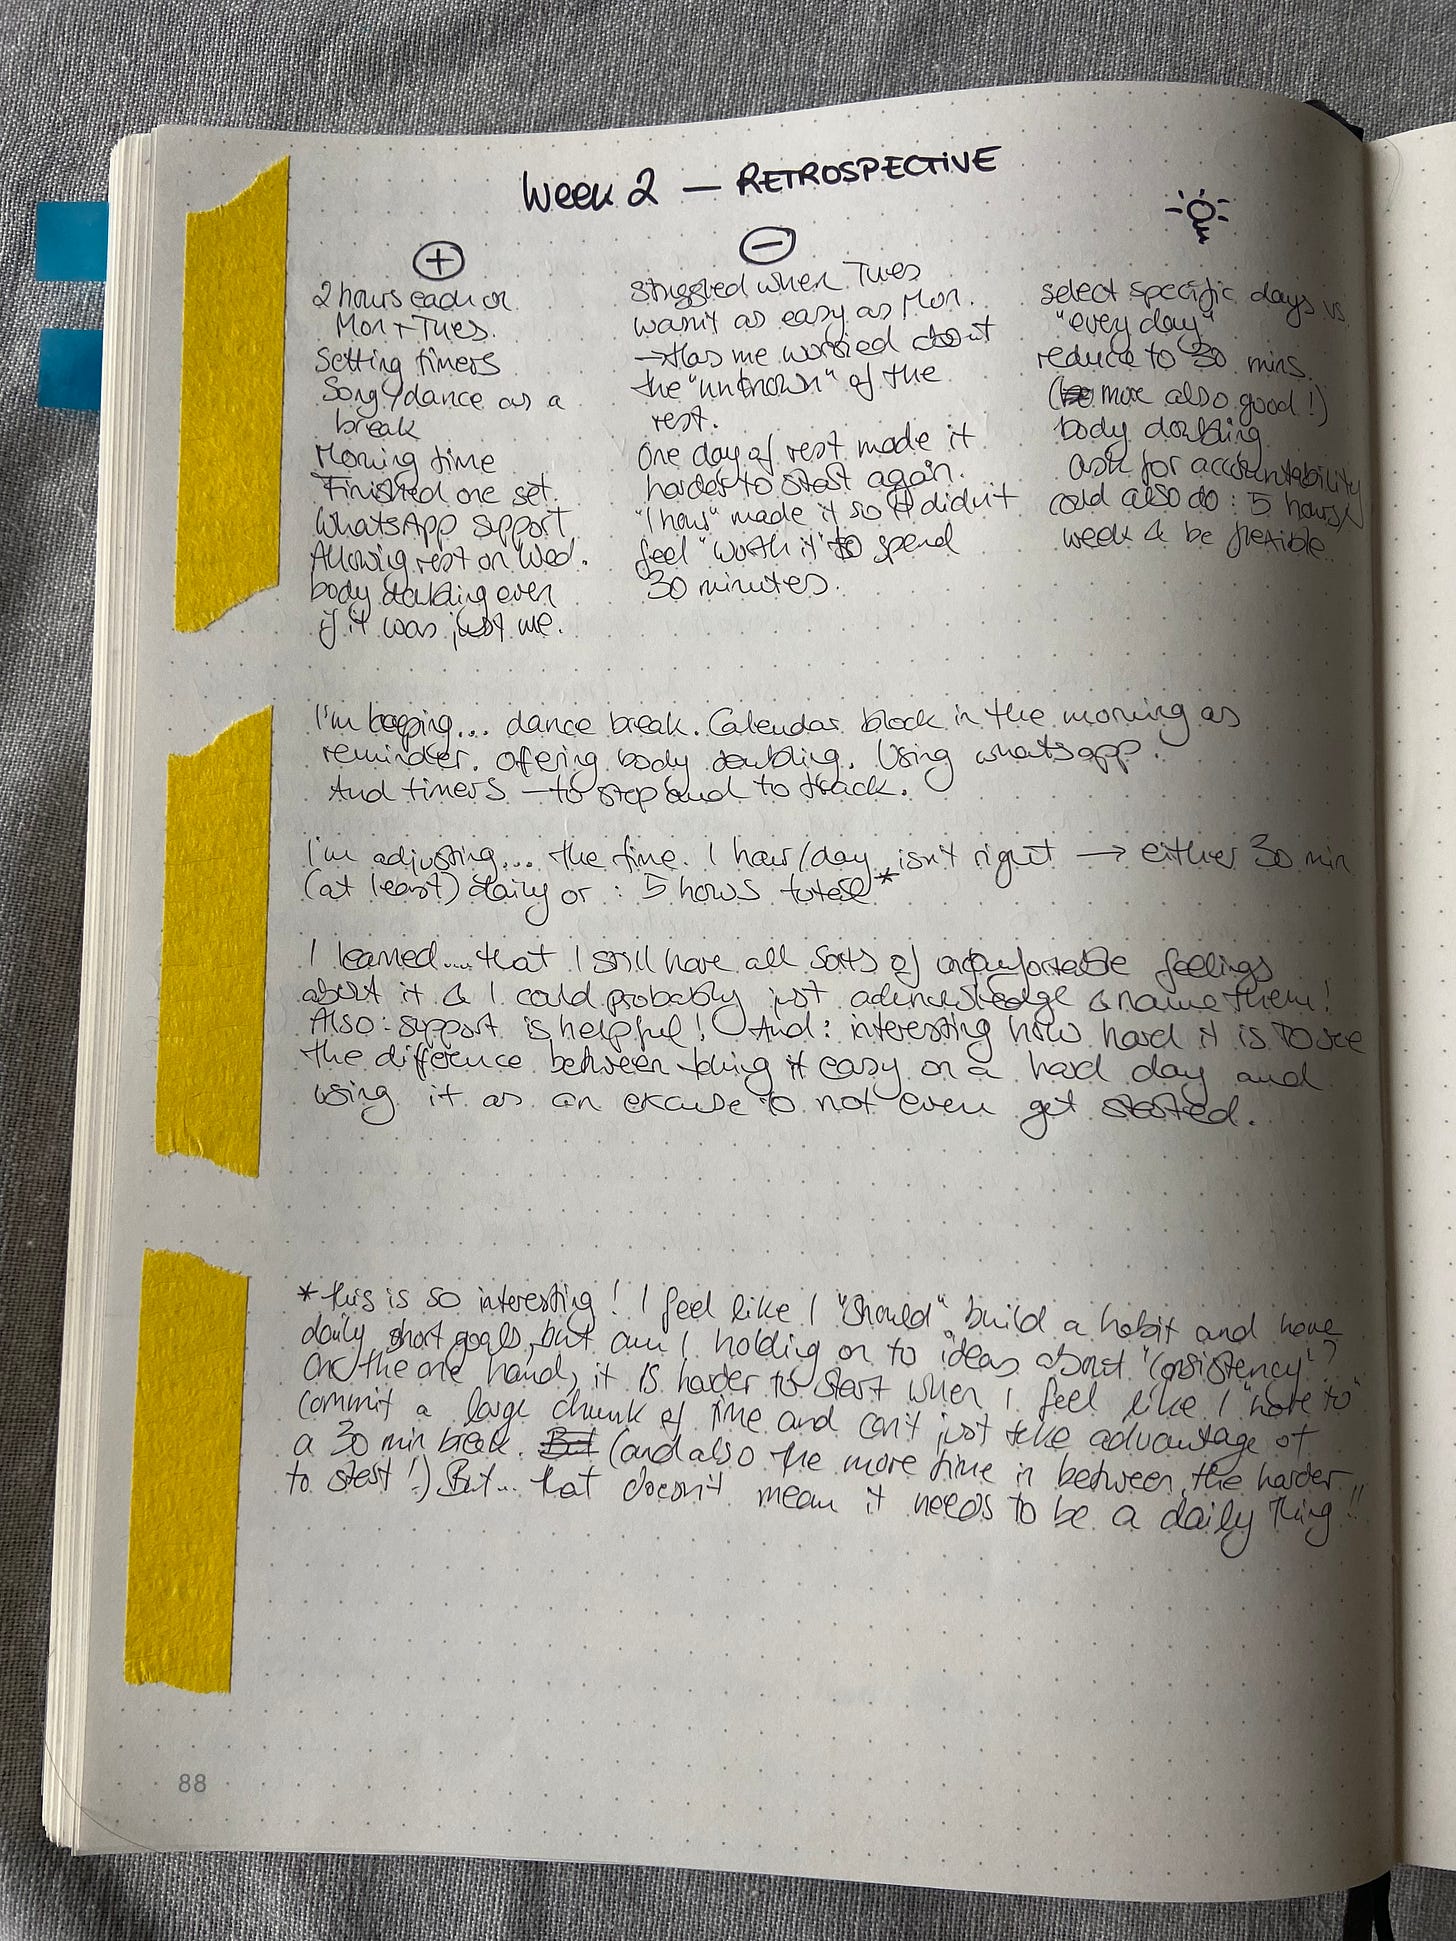 Week 2 — RETROSPECTIVE
+
2 hours each on
Mon + Tues.
Setting timers
Song/dance as a
break
Morning time
Finished one set.
WhatsApp support
Allowing rest on Wed.
body doubling even
if it was just me.
−
struggled when Tues
wasn't as easy as Mon.
→ Has me worried about
the "unknown" of the
rest.
One day of rest made it
harder to start again.
"1 hour" made it so it didn't
feel "worth it" to spend
30 minutes.
select specific days vs.
"every day"
reduce to 30 mins.
(more also good!)
body doubling
ask for accountability
could also do: 5 hours/
week & be flexible.
I'm keeping... dance break. Calendar block in the morning as
reminder. offering body doubling. Using whatsapp.
And timers – to stop and to track.
I'm adjusting... the time. 1 hour/day isn't right → either 30 min
(at least) daily or : 5 hours total*
I learned.... that I still have all sorts of uncomfortable feelings
about it & I could probably just acknowledge & name them!
Also: support is helpful! And: interesting how hard it is to see
the difference between taking it easy on a hard day and
using it as an excuse to not even get started.
*this is so interesting! I feel like I "should" build a habit and have
daily short goals, but am I holding on to ideas about "consistency"?
On the one hand, it is harder to start when I feel like I "have to"
commit a large chunk of time and can't just take advantage of
a 30 min break. But (and also the more time in between, the harder
to start!) But... that doesn't mean it needs to be a daily thing!!
88